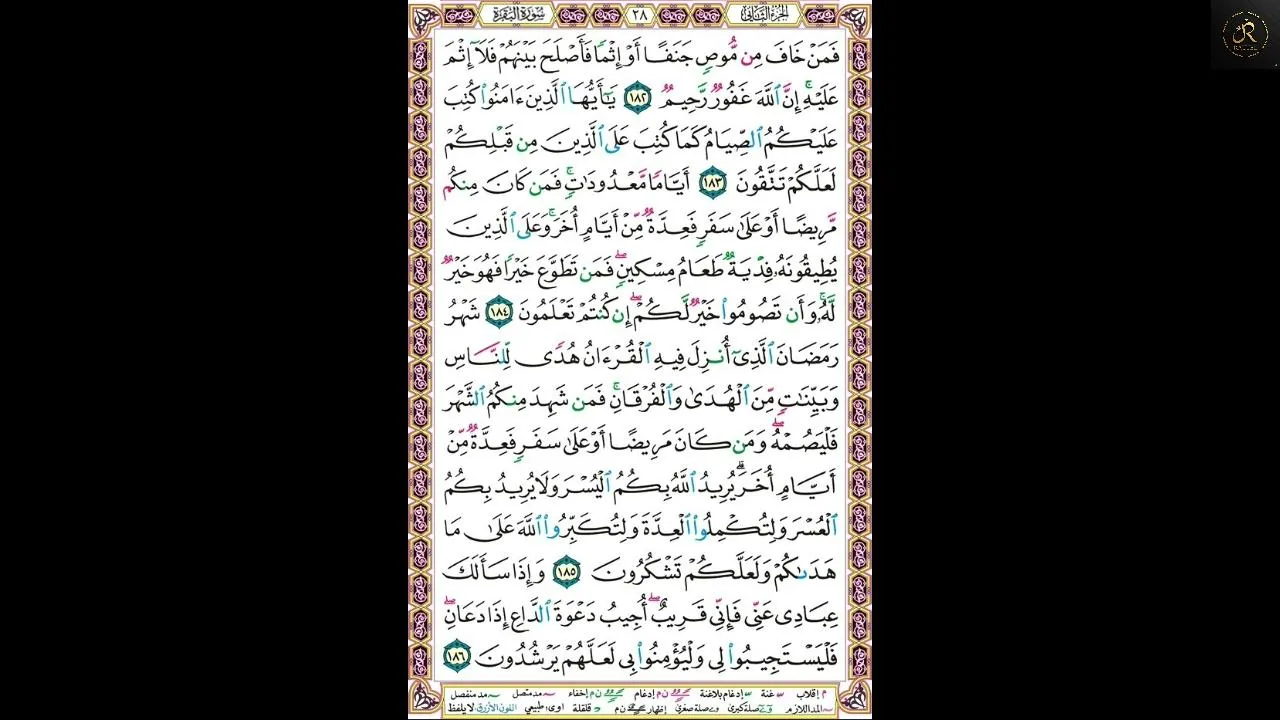 الجزء الثاني ٢٨ سورة البقرة
فَمَنْ خَافَ مِن مُّوصٍ جَنَفًا أَوْ إِثْمًا فَأَصْلَحَ بَيْنَهُمْ فَلَآ إِثْمَ
عَلَيْهِ ۚ إِنَّ ٱللَّهَ غَفُورٌ رَّحِيمٌ ١٨٢ يَٰٓأَيُّهَا ٱلَّذِينَ ءَامَنُوا۟ كُتِبَ
عَلَيْكُمُ ٱلصِّيَامُ كَمَا كُتِبَ عَلَى ٱلَّذِينَ مِن قَبْلِكُمْ
لَعَلَّكُمْ تَتَّقُونَ ١٨٣ أَيَّامًا مَّعْدُودَٰتٍ ۚ فَمَن كَانَ مِنكُم
مَّرِيضًا أَوْ عَلَىٰ سَفَرٍ فَعِدَّةٌ مِّنْ أَيَّامٍ أُخَرَ ۚ وَعَلَى ٱلَّذِينَ
يُطِيقُونَهُۥ فِدْيَةٌ طَعَامُ مِسْكِينٍ ۖ فَمَن تَطَوَّعَ خَيْرًا فَهُوَ خَيْرٌ
لَّهُۥ ۚ وَأَن تَصُومُوا۟ خَيْرٌ لَّكُمْ ۖ إِن كُنتُمْ تَعْلَمُونَ ١٨٤ شَهْرُ
رَمَضَانَ ٱلَّذِىٓ أُنزِلَ فِيهِ ٱلْقُرْءَانُ هُدًى لِّلنَّاسِ
وَبَيِّنَٰتٍ مِّنَ ٱلْهُدَىٰ وَٱلْفُرْقَانِ ۚ فَمَن شَهِدَ مِنكُمُ ٱلشَّهْرَ
فَلْيَصُمْهُ ۖ وَمَن كَانَ مَرِيضًا أَوْ عَلَىٰ سَفَرٍ فَعِدَّةٌ مِّنْ
أَيَّامٍ أُخَرَ ۗ يُرِيدُ ٱللَّهُ بِكُمُ ٱلْيُسْرَ وَلَا يُرِيدُ بِكُمُ
ٱلْعُسْرَ وَلِتُكْمِلُوا۟ ٱلْعِدَّةَ وَلِتُكَبِّرُوا۟ ٱللَّهَ عَلَىٰ مَا
هَدَىٰكُمْ وَلَعَلَّكُمْ تَشْكُرُونَ ١٨٥ وَإِذَا سَأَلَكَ
عِبَادِى عَنِّى فَإِنِّى قَرِيبٌ ۖ أُجِيبُ دَعْوَةَ ٱلدَّاعِ إِذَا دَعَانِ ۖ
فَلْيَسْتَجِيبُوا۟ لِى وَلْيُؤْمِنُوا۟ بِى لَعَلَّهُمْ يَرْشُدُونَ ١٨٦
م إقلاب غنة إدغام بلاغنة ن م إدغام ن م إخفاء مد متصل مد منفصل
المد اللازم صلة كبرى صلة صغرى إظهار ن م قلقلة اوى: طبيعي اللون الأزرق لا يلفظ